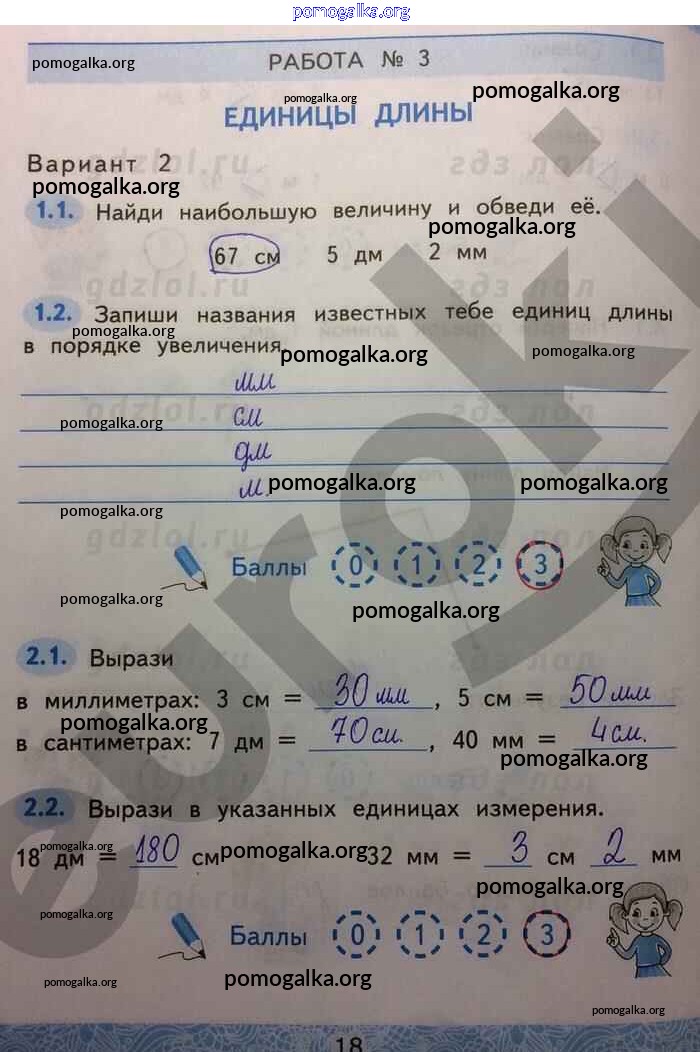 pomogalka.org
РАБОТА № 3
pomogalka.org
pomogalka.org
pomogalka.org
ЕДИНИЦЫ ДЛИНЫ
gdzlol.ru
Вариант 2
pomogalka.org
1.1. Найди наибольшую величину и обведи её.
pomogalka.org
67 см 5 дм 2 мм
gdzlol.ru
1.2. Запиши названия известных тебе единиц длины
pomogalka.org
в порядке увеличения.
pomogalka.org
pomogalka.org
мм
gdzlol.ru
pomogalka.org
см
дм
м.
pomogalka.org
pomogalka.org
pomogalka.org
gdzlol.ru
Баллы 0 1 2 3
pomogalka.org
pomogalka.org
2.1. Вырази
в миллиметрах: 3 см = 30 мм, 5 см = 50 мм
pomogalka.org
в сантиметрах: 7 дм = 70 см., 40 мм = 4 см.
pomogalka.org
2.2. Вырази в указанных единицах измерения.
pomogalka.org
18 дм = 180 см 32 мм = 3 см 2 мм
pomogalka.org
pomogalka.org
gdzlol.ru
pomogalka.org
Баллы 0 1 2 3
pomogalka.org
pomogalka.org
pomogalka.org
18
euroki